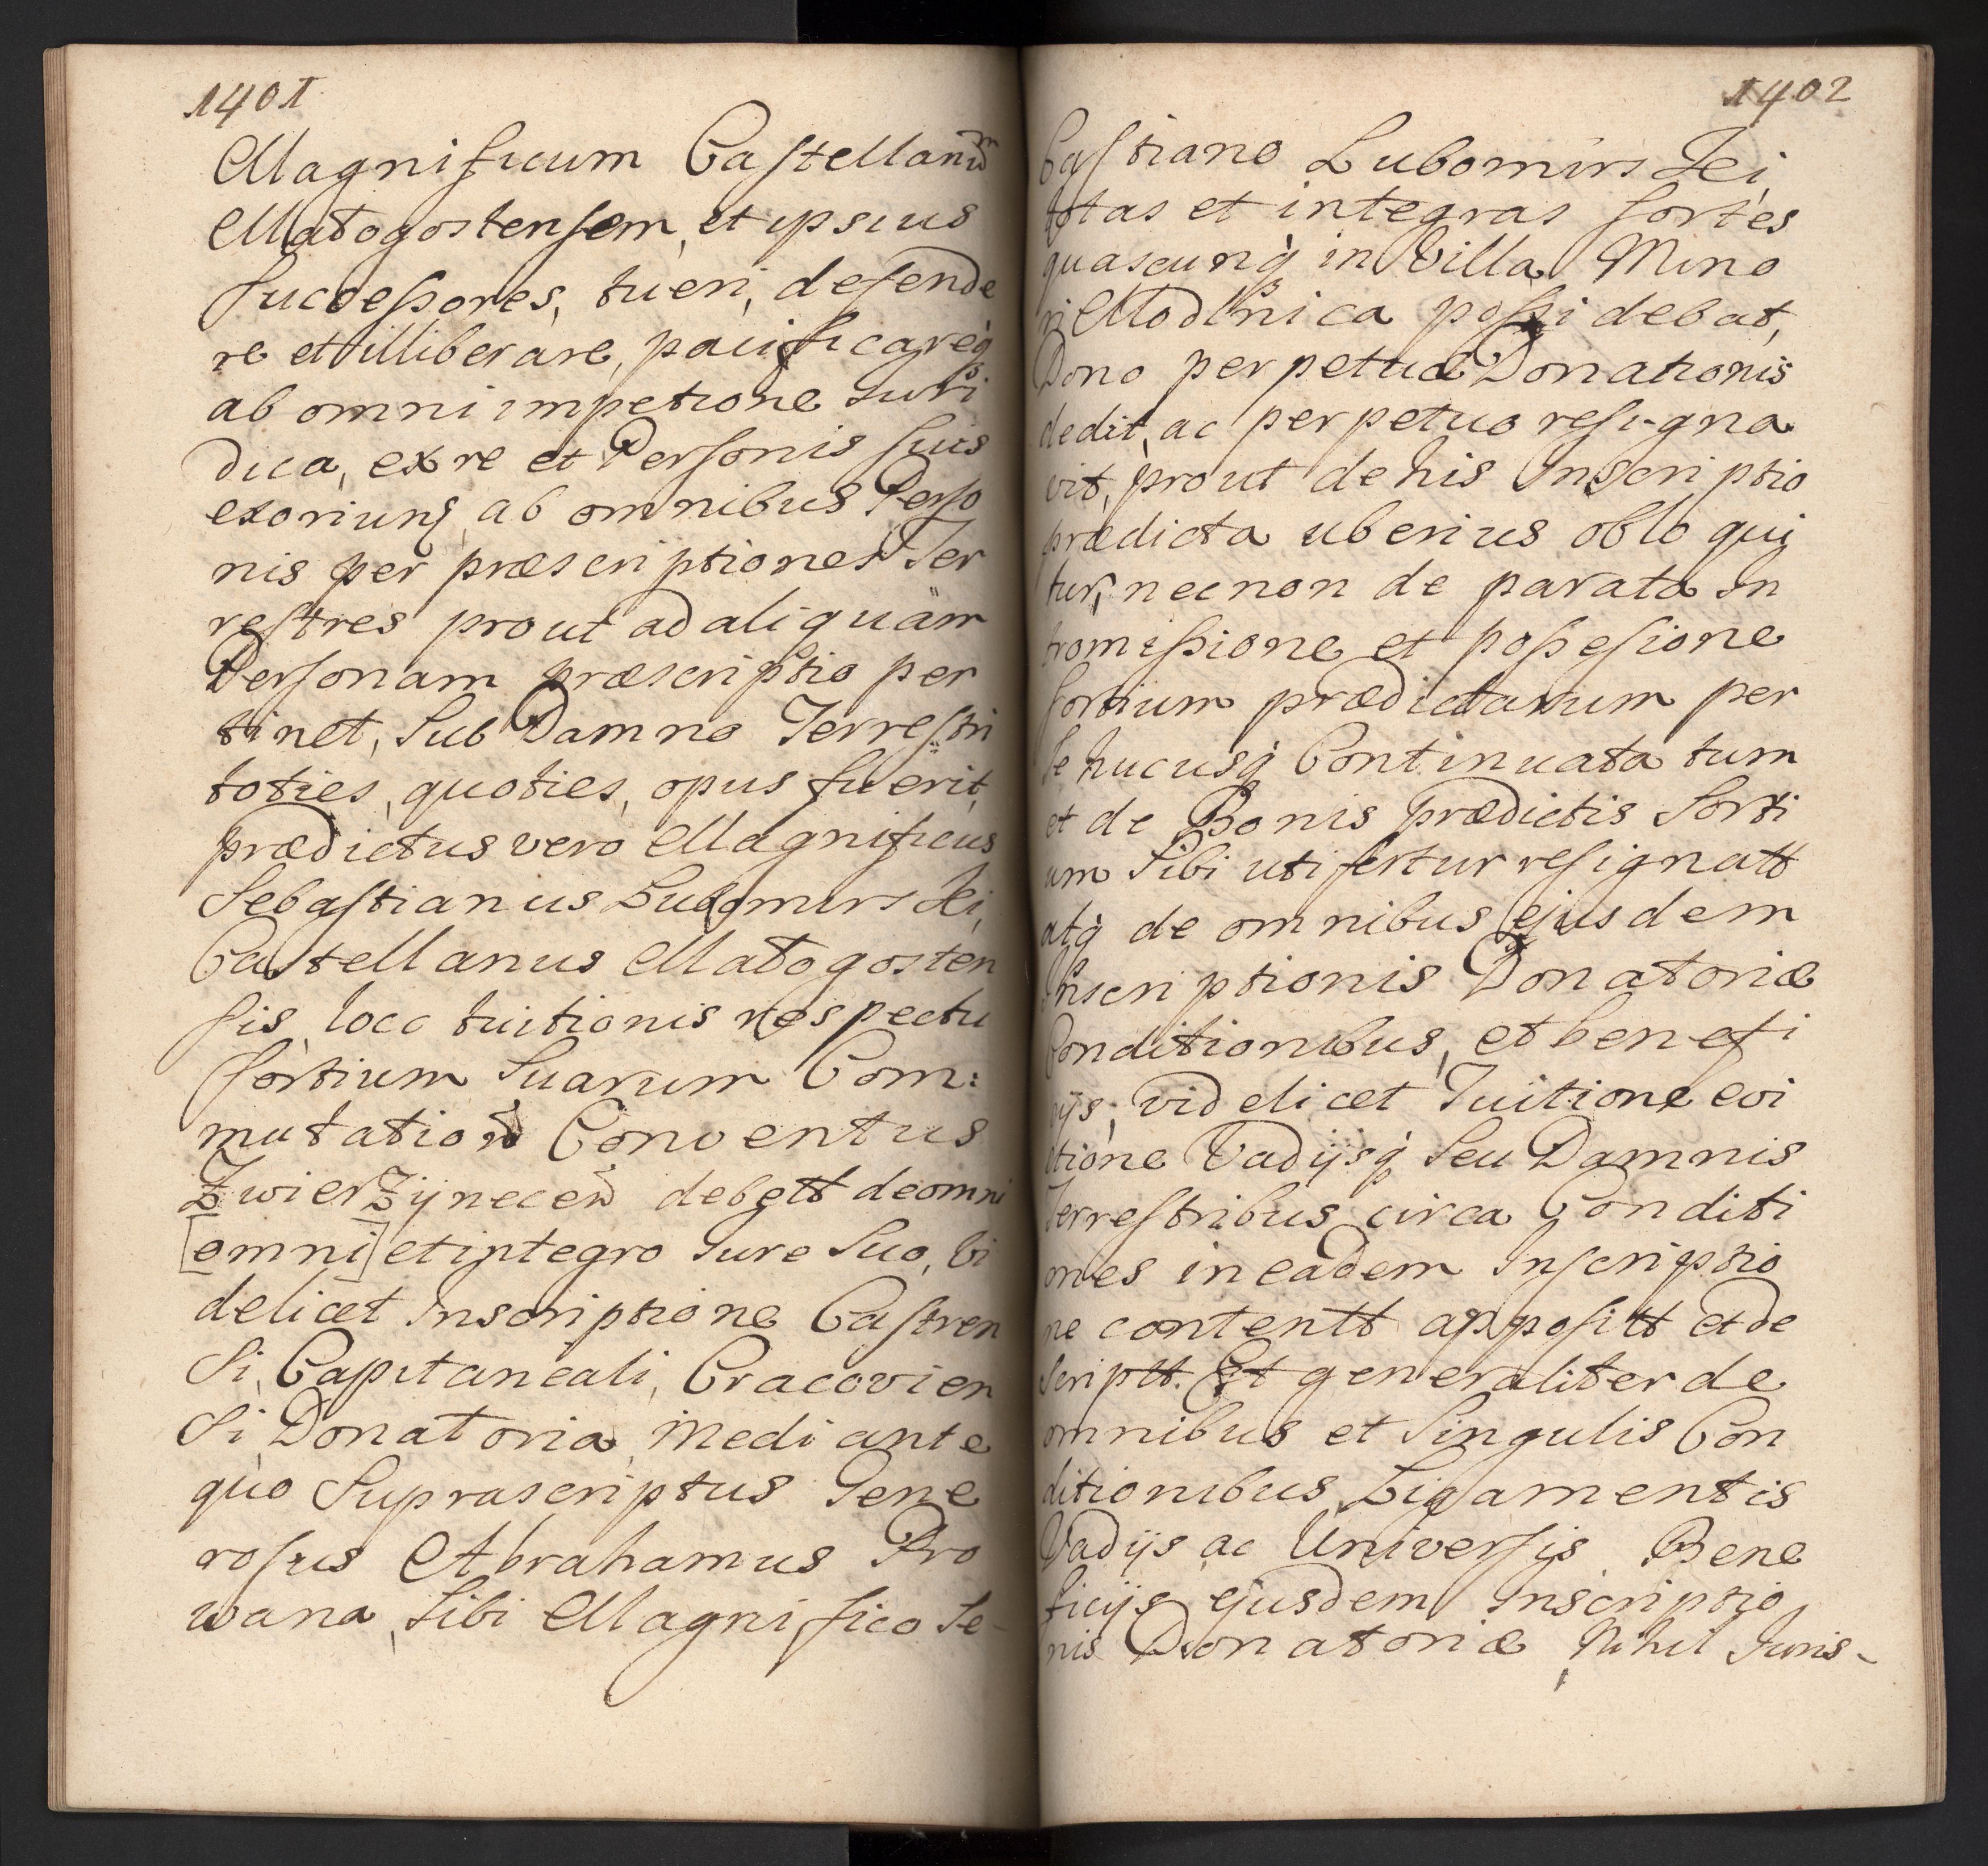 1401
Magnificum Castellanum
Małogostensem, et ipsius
Successores, tueri, defende
re et illiberare, pacificareq
ab omni impetione Iuri
dica, ex re et Personis suis
exoriunq ab omnibus Perso
nis per præscriptiones Ter
restres prout ad aliquam
Personam præscriptio per
tinet, Sub Damno Terrestri
toties, quoties, opus fuerit,
prædictus vero Magnificus
Sebastianus Lubomirski,
Castellanus Małogosten
sis, loco tuitionis respectu
sortium Suarum Com:
mutation Conventus
Zwierzÿnecen debett de omni
[omni] et integro Iure Suo, vi
delicet Inscriptione Castren
si, Capitaneali, Cracovien
si Donatoria, mediante
quo Suprascriptus Gene
rosus Abrahamus Pro
wana, Sibi Magnifico Se-
1402
bastiano Lubomirskei,
totas et integras sortes
quascunq in Villa Mino
ri Modlnica possidebat,
Dono perpetuæ Donationis
dedit, ac perpetuo resigna
vit, prout de his Inscriptio
prædicta uberius obloqui
tur, necnon de parata In
tromissione et possessione
sortium prædictarum per
se hucusq Continuata tum
et de Bonis prædictis Sorti
um Sibi uti fertur resignatt
atq de omnibus ejusdem
Inscriptionis Donatoriæ
Conditionibus, et benefi
cijs, videlicet Tuitione evi
ctione Vadijsq Seu Damnis
Terrestribus circa Conditi
ones in eadem Inscriptio
ne contentt appositt et de
scriptt. Et generaliter de
omnibus et Singulis Con
ditionibus, Ligamentis
Vadijs ac Universis Bene
ficijs ejusdem Inscriptio
nis Donatoriæ, Nihil Iuris-